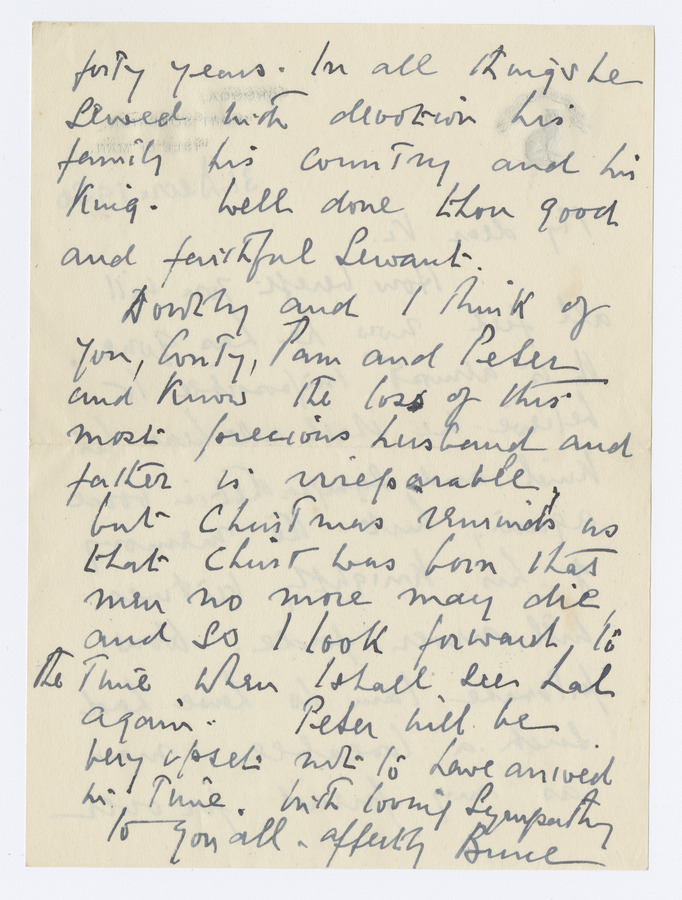 forty years. In all things he
served with devotion his
family his country and his
King. Well done thou good
and faithful servant.
Dorothy and I think of
you, Conty, Pam and Peter
and know the loss of this
most precious husband and
father is irreparable,
but Christmas reminds us
that Christ was born that
men no more may die,
and so I look forward to
the time when I shall see Hal
again. Peter will be
very upset not to have arrived
in time. With loving sympathy
to you all. affectly Bruce